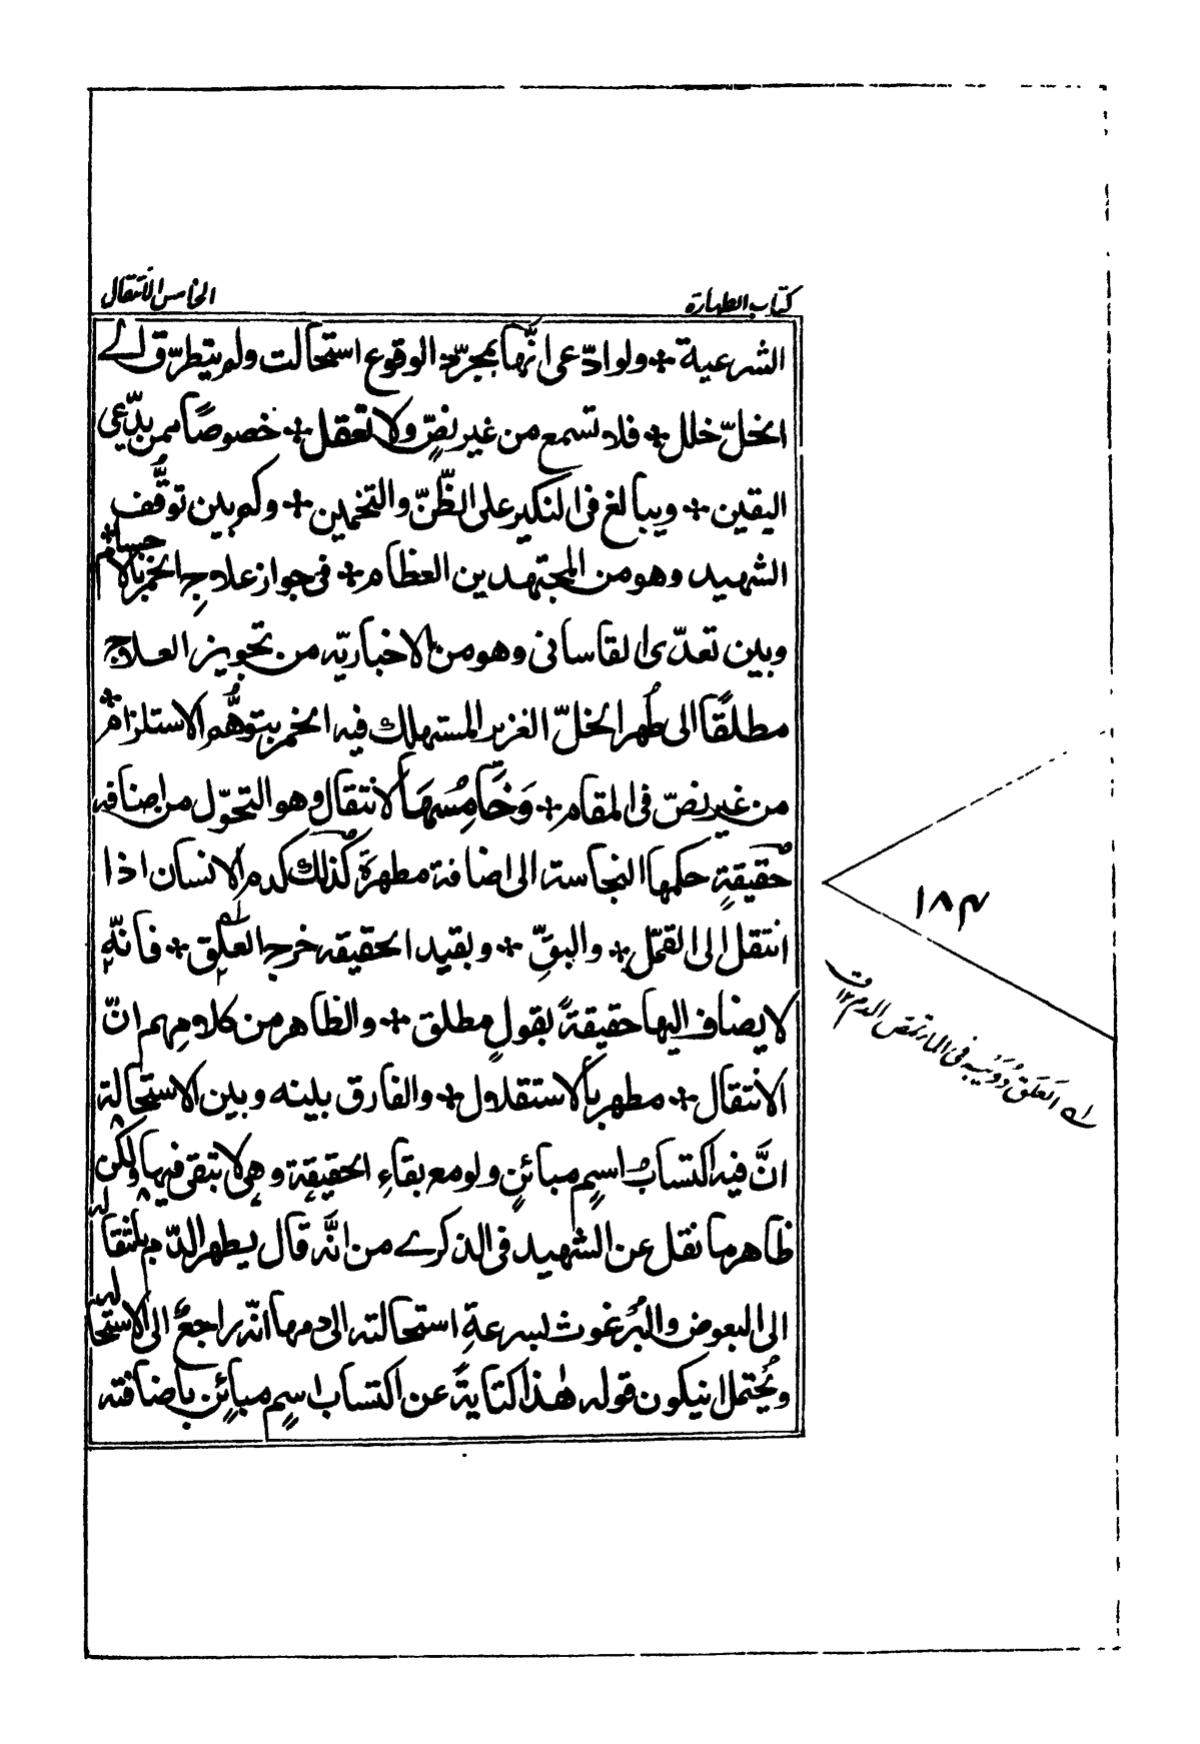 كتاب الطهارة
الخامس الانتقال
الشرعية + ولو ادّعى انّها بمجرّد الوقوع استحالت ولم يتطرّق الے
الخلّ خلل + فلا تسمع من غير نصٍّ ولا تعقل + خصوصًا ممن يدّعى
اليقين + ويبالغ فى النكير على الظّنّ والتخمين + وكم بين توقُّف
الشهيد وهو من المجتهدين العظام + فى جواز علاجِ الخمر بالاجسام +
وبين تعدّى القاسانى وهو من الاخباريّه من تجويز العلاج
مطلقًا الى طُهر الخلّ الغزير المستهلك فيه الخمر بتوهُّم الاستلزام +
من غير نصّ فى المقام + وَخَامِسُهَا الانتقال وهو التحوّل من اضافه
حقيقةٍ حكمها النجاسة الى اضافة مطهرةَ كذلك كدم الانسان اذا
انتقل الى القمّل + والبقّ + وبقيد الحقيقه خرج العلق + فانّه
لا يضاف اليها حقيقةً بقولٍ مطلق + والظاهر من كلامهم انّ
الانتقال + مطهر بالاستقلال + والفارق بينه وبين الاستحالة
انَّ فيه اكتسابُ اسمٍ مبائنٍ ولو مع بقاءِ الحقيقة وهى لا تبقى فيها ولكن
ظاهر ما نقل عن الشهيد فى الذكرے من انَّه قال يطهر الدّم بانتقاله
الى البعوض والبُرغوث لسرعةِ استحالته الى دمها انّه راجعٌ الى الاستحالة
ويُحتمل انيكون قوله هٰذا كنايةً عن اكتساب اسمٍ مبائنٍ باضافته
۱۸۴
اے العَلَق دُوَيبه فى الماء تمص الدم ۱۲ ق